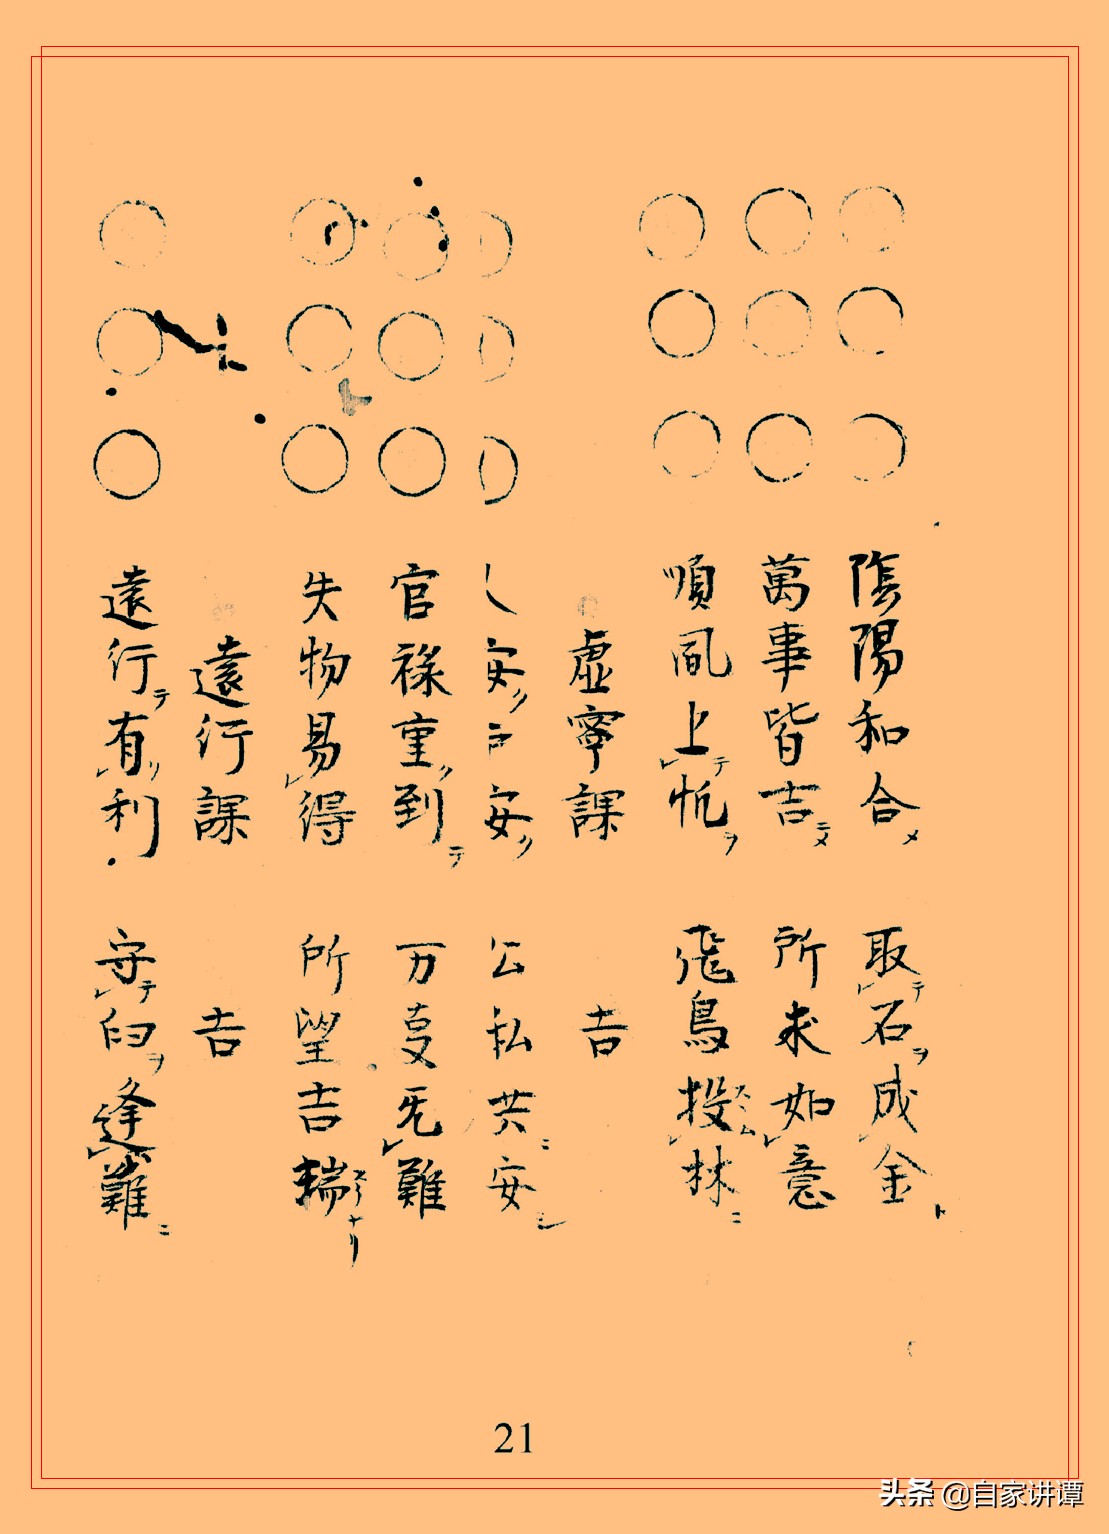 陰陽和合メ　取テ石ヲ成金ト
萬事皆吉ニメ　所求如意
順風上テ帆ヲ　飛鳥投林ニ
虚寧課　吉
安リ安リ　公私共ニ安シ
官禄重リ到テ　万事无難
失物易得　所望吉
遠行課　吉
遠行テ有リ利　守テ旧ヲ逢難ニ
21
头条 @自家讲谭